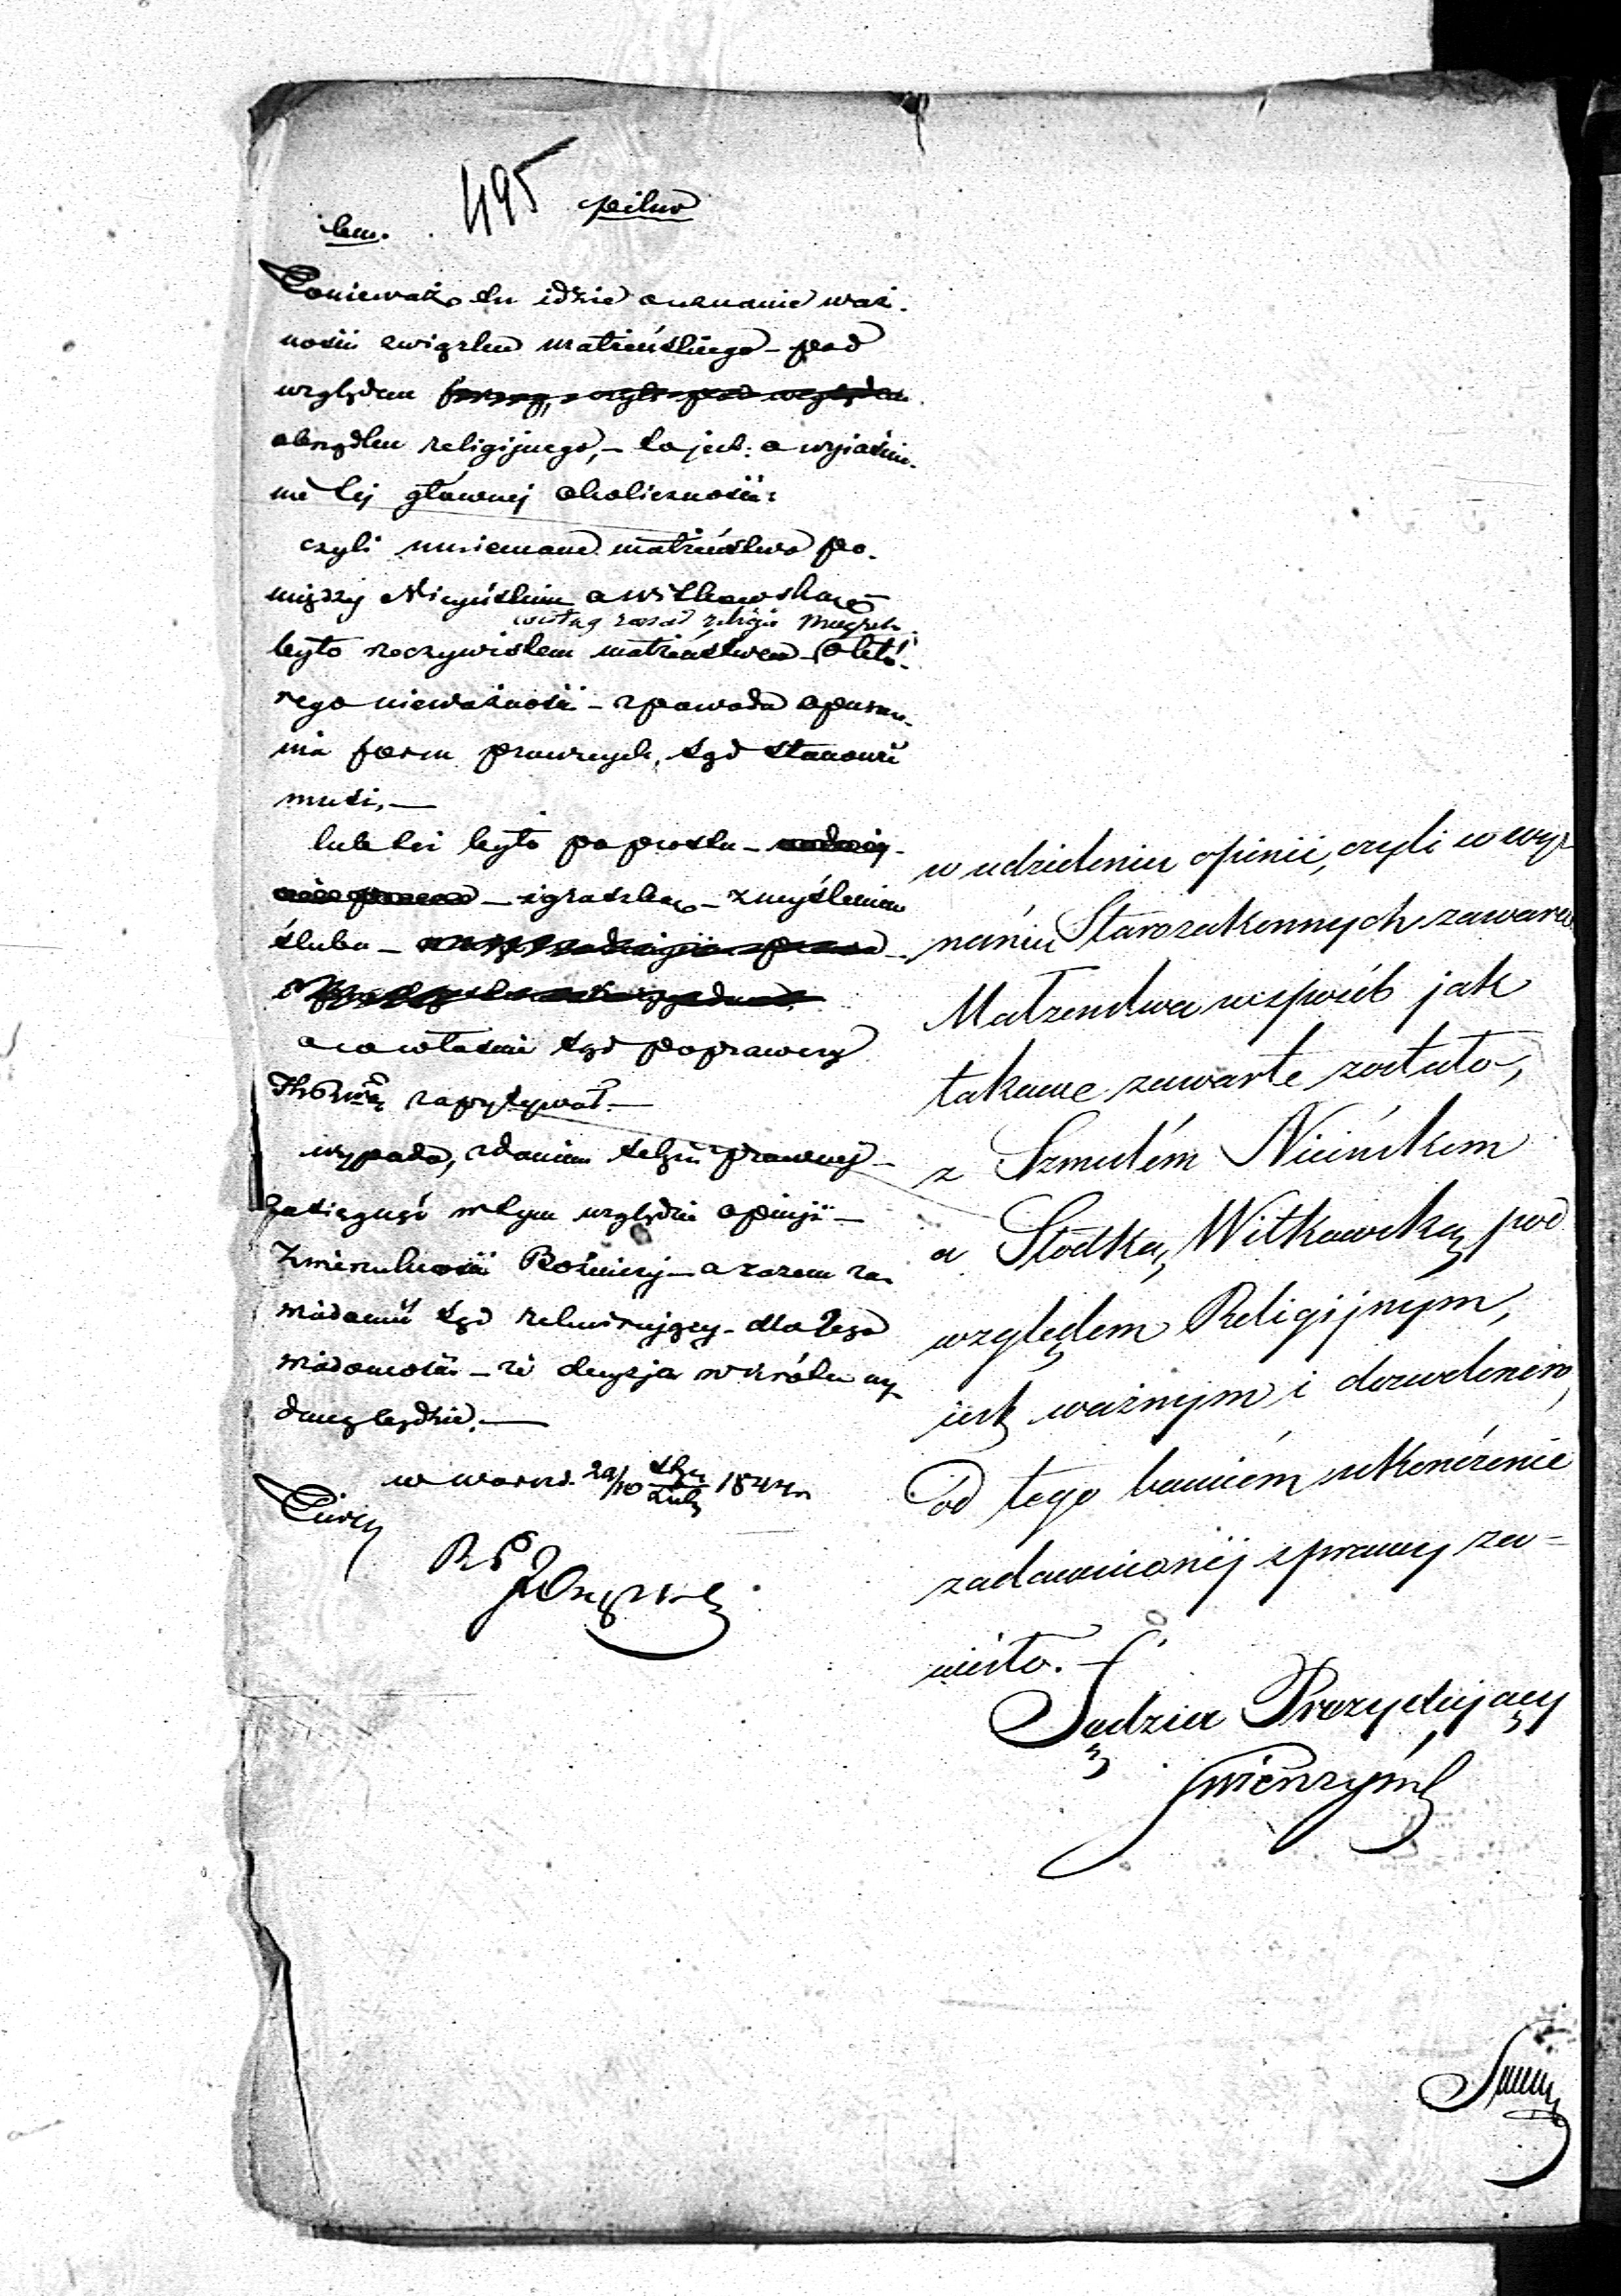 495 pilno
Ponieważ tu idzie o uznanie waż-
ności związku małżeńskiego – pod
względem
obrządku religijnego, – to jest: o wyjaśnie-
nie tej głównej okoliczności:
czyli mniemane małżeństwo po-
między Nicińskim a Witkowską –
według zasad religii Mojżesz.
było rzeczywistem małżeństwem – o któ-
rego nieważności – z powodu opuszcze-
nia form prawnych, Sąd stanowić
musi, —
lub też było po prostu –
– igraszką – zmyśleniem
ślubu –
o co właśnie Sąd Poprawczy
zapytywał. —
wypada, zdaniem Sekcji prawnej –
zasięgnąć w tym względzie opinji –
Zwierzchności Bożniczej – a razem za-
wiadomić Sąd rekwirujący – dla jego
wiadomości – że decyzja wkrótce wy-
daną będzie. —
w Warsz. 29/10 1844
w udzieleniu opinii, czyli w wyz-
naniu Starozakonnych zawarcie
Małżeństwa w sposób jak
takowe zawarte zostało,
z Szmulem Nicińskim
a Słodką Witkowską pod
względem Religijnym,
jest ważnym i dozwolonem,
Od tego bowiem ukończenie
zadawnionej sprawy za-
wisło. –
Sędzia Prezydujący